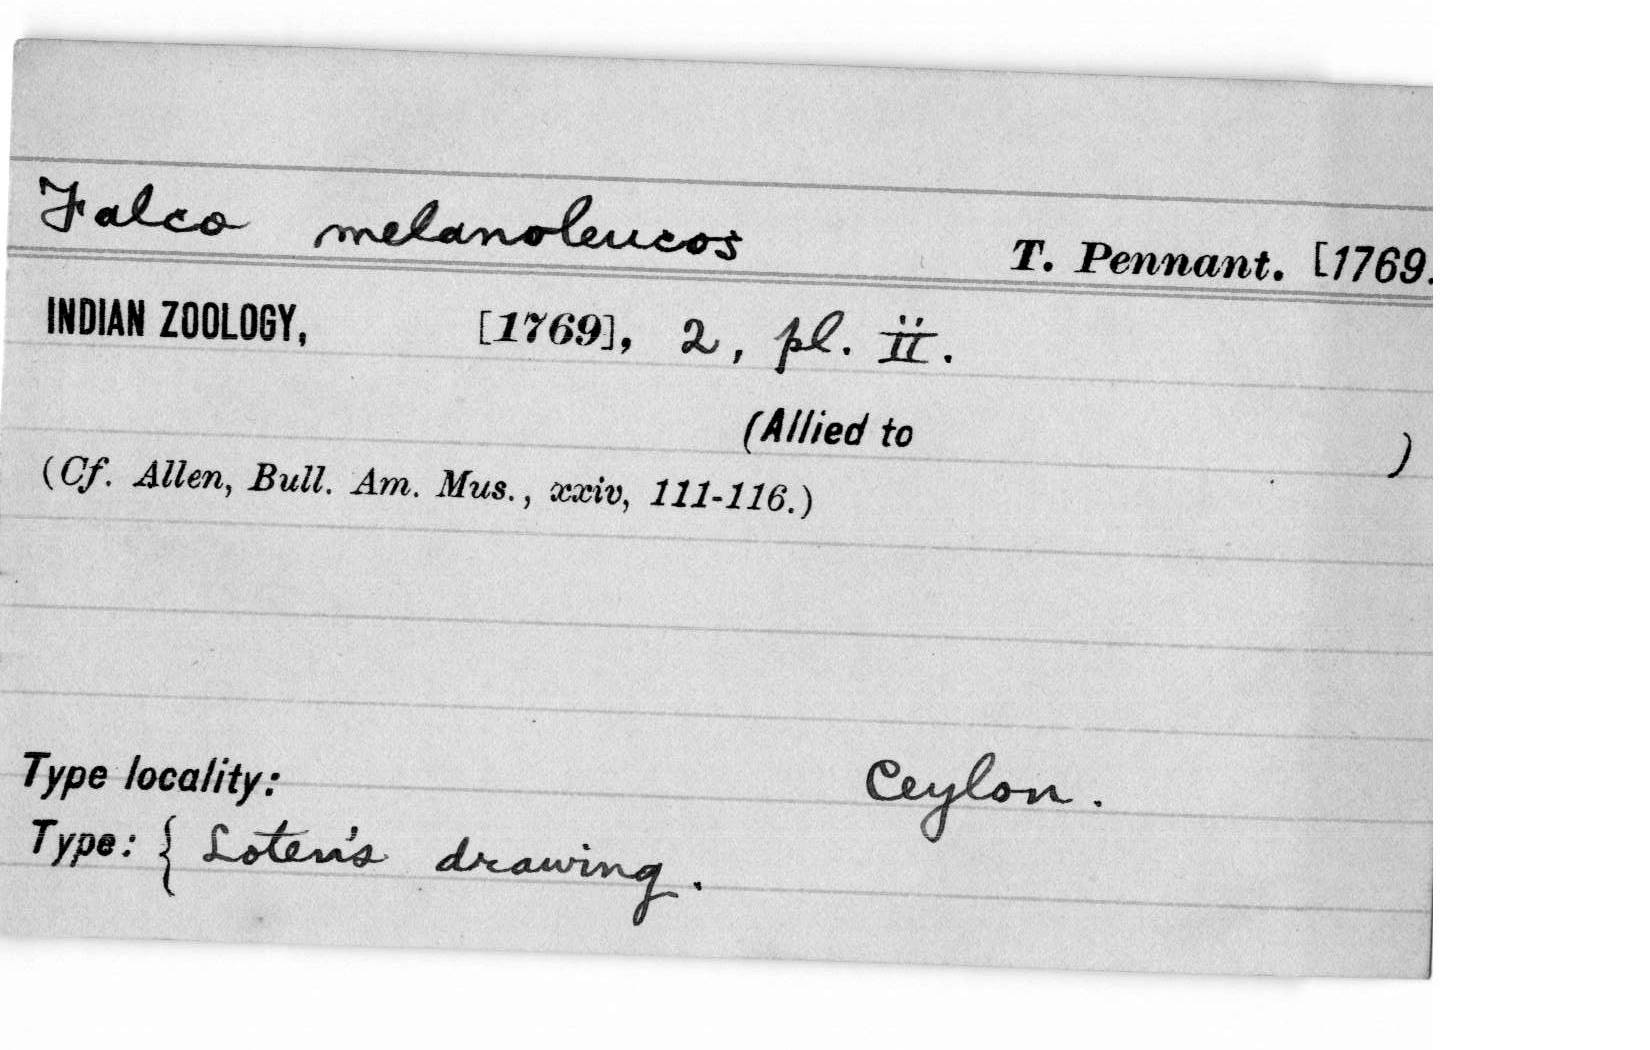 Falco melanoleucos T. Pennant. [1769.
INDIAN ZOOLOGY, [1769], 2, pl. ii.
(Allied to )
(Cf. Allen, Bull. Am. Mus., xxiv, 111-116.)
Type locality: Ceylon.
Type: { Loten's drawing.